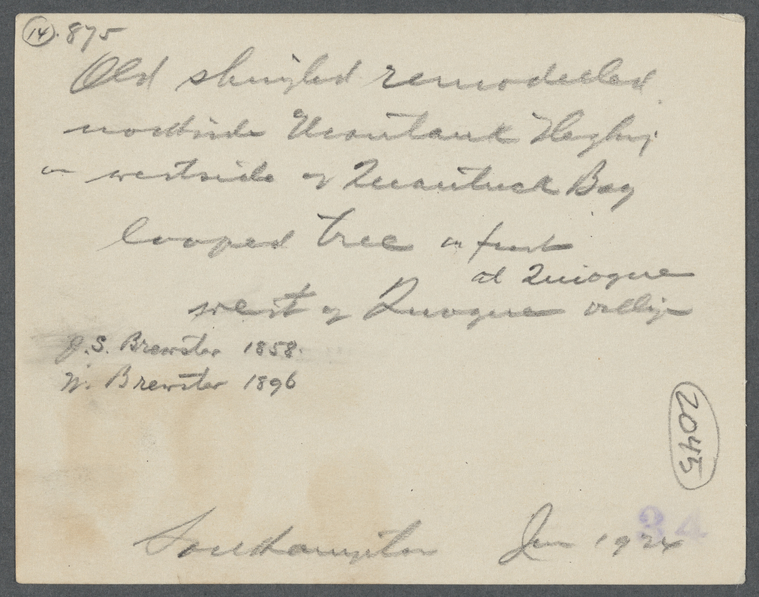 14. 875
Old shingled remodelled
northside Montauk Highy
on westside of Quantuck Bay
looped tree in front
at Quiogue
west of Quogue village
J.S. Brewster 1858.
W. Brewster 1896
2045
34
Southampton Jun 1924